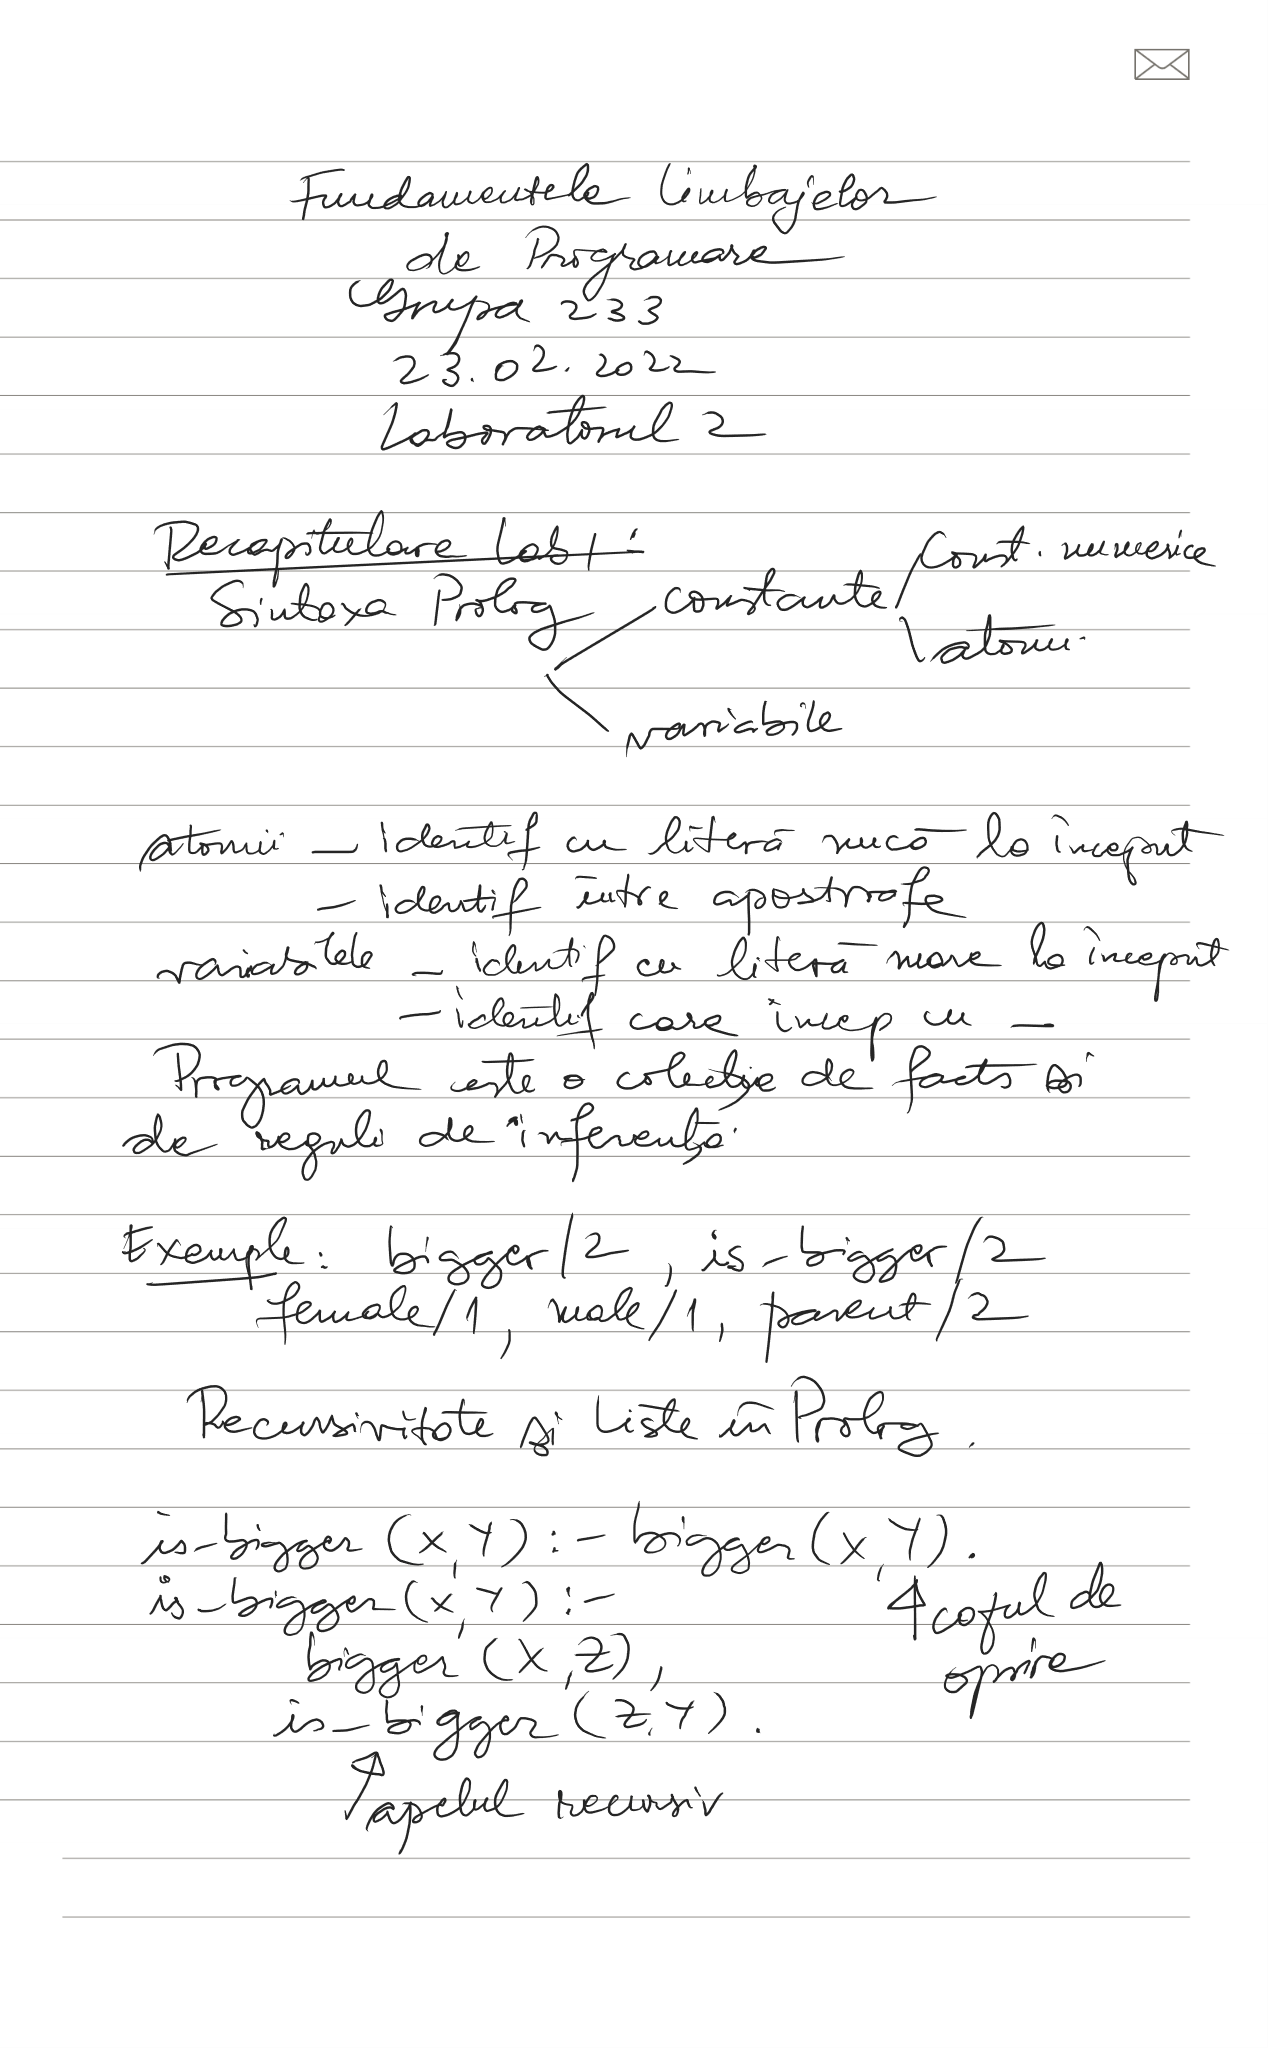 Fundamentele limbajelor
de Programare
Grupa 233
23.02.2022
Laboratorul 2
Recapitulare Lab 1:
Sintaxa Prolog
constante
const. numerice
atomi.
variabile
atomii - identif cu literă mică la început
- identif între apostrofe
variabilele - identif cu literă mare la început
- identif care încep cu _
Programul este o colecție de facts și
de reguli de inferență.
Exemple: bigger/2, is_bigger/2
female/1, male/1, parent/2
Recursivitate și liste în Prolog.
is_bigger(X,Y) :- bigger(X,Y).
is_bigger(X,Y) :-
bigger(X,Z),
is_bigger(Z,Y).
cazul de
oprire
apelul recursiv